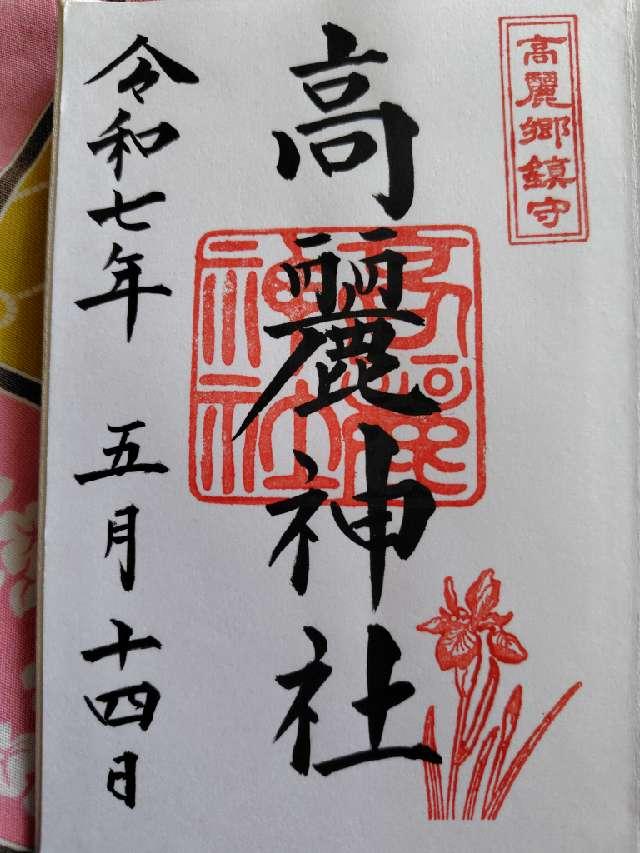 高麗郷鎮守
高麗神社
高麗神社
令和七年 五月 十四日